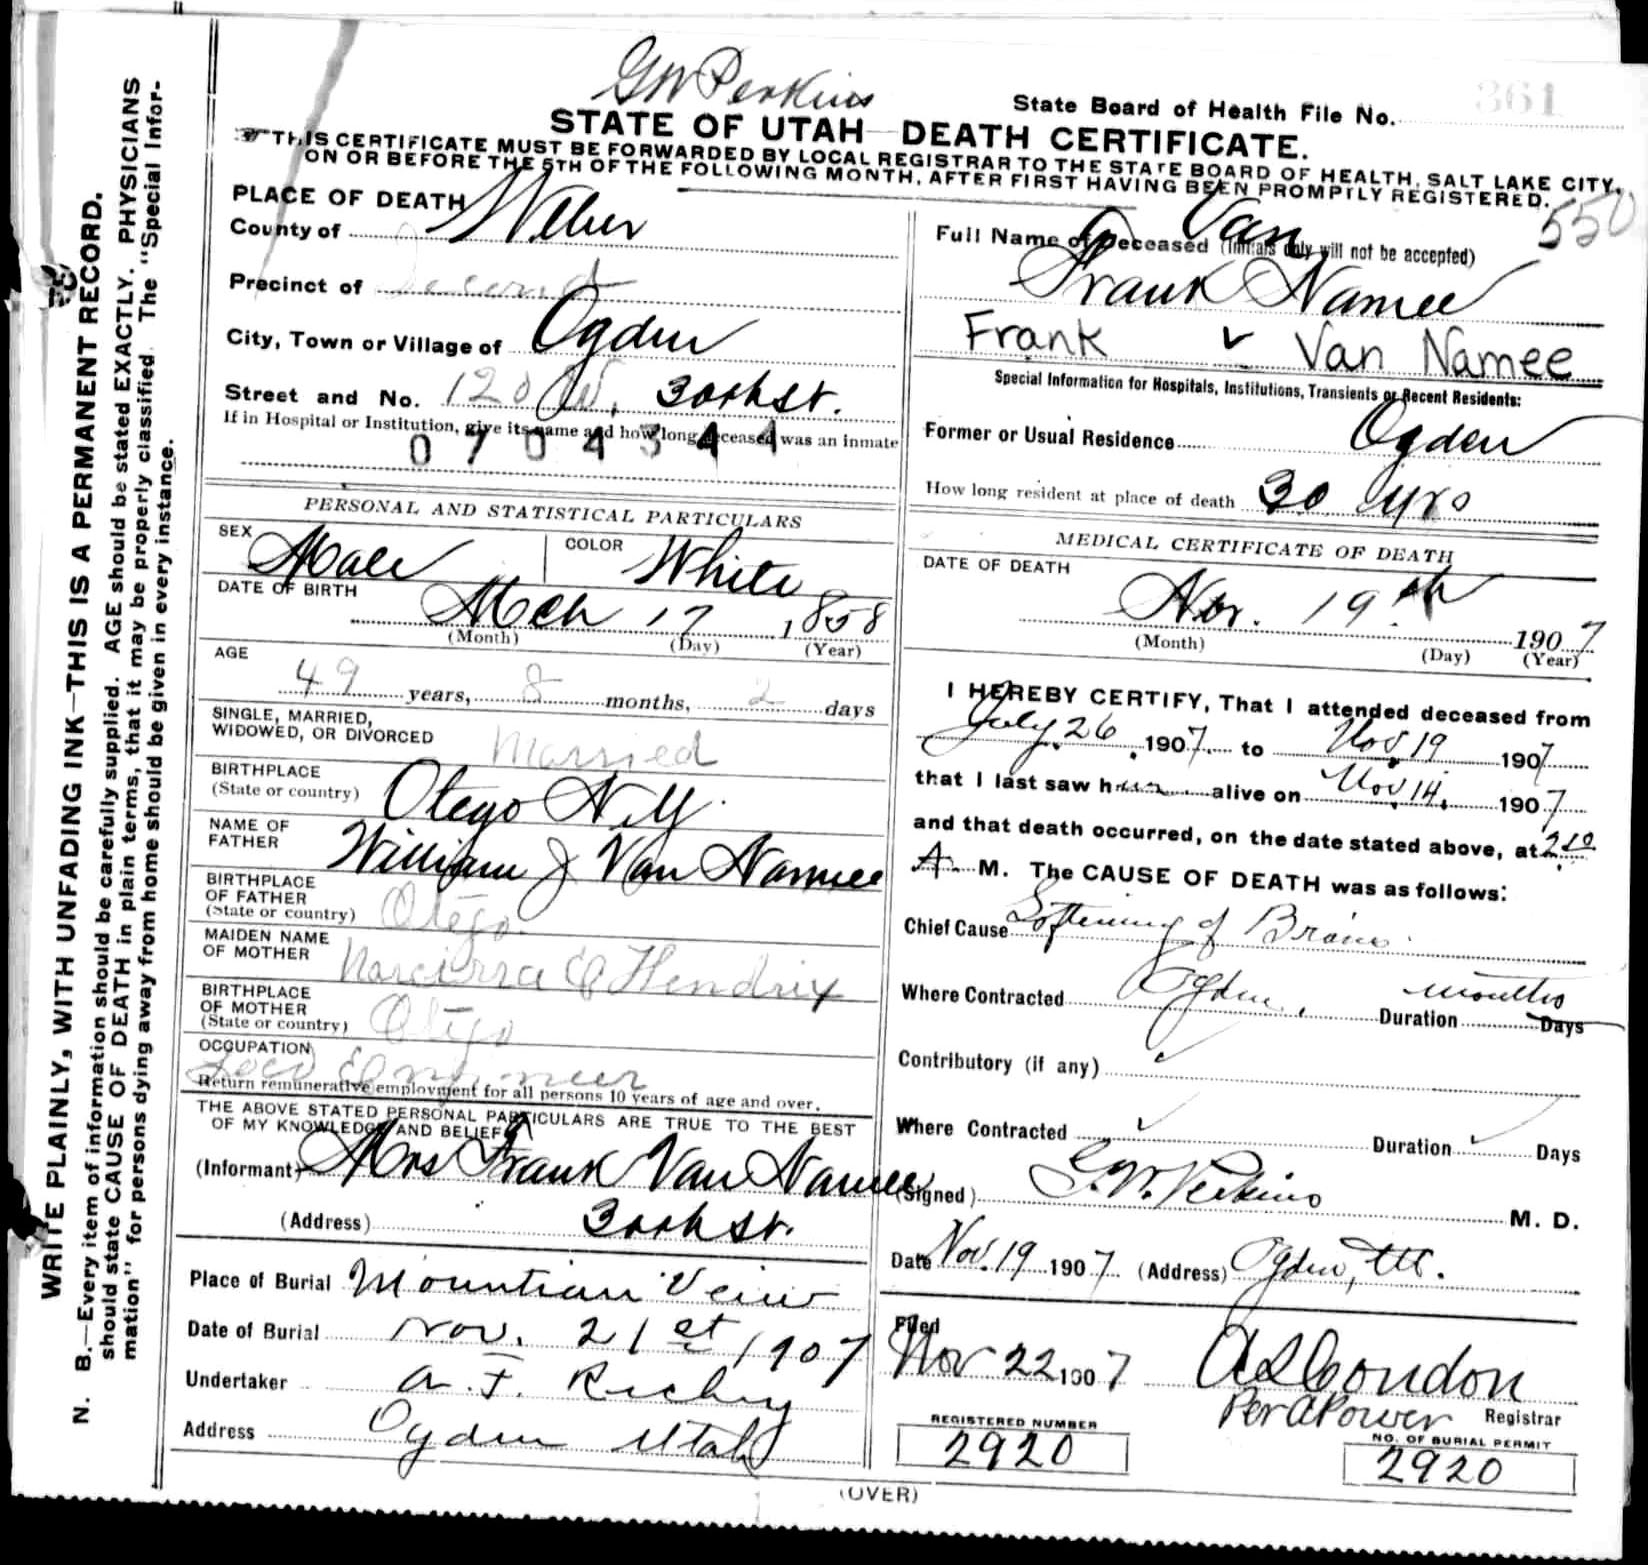 G W Perkins
State Board of Health File No. 361
STATE OF UTAH—DEATH CERTIFICATE.
THIS CERTIFICATE MUST BE FORWARDED BY LOCAL REGISTRAR TO THE STATE BOARD OF HEALTH, SALT LAKE CITY,
ON OR BEFORE THE 5TH OF THE FOLLOWING MONTH, AFTER FIRST HAVING BEEN PROMPTLY REGISTERED.
550
WRITE PLAINLY, WITH UNFADING INK—THIS IS A PERMANENT RECORD.
N. B.—Every item of information should be carefully supplied. AGE should be stated EXACTLY. PHYSICIANS
should state CAUSE OF DEATH in plain terms, that it may be properly classified. The "Special Infor-
mation" for persons dying away from home should be given in every instance.
PLACE OF DEATH
County of Weber
Precinct of Second
City, Town or Village of Ogden
Street and No. 120 W. 30th St.
If in Hospital or Institution, give its name and how long deceased was an inmate
0704344
PERSONAL AND STATISTICAL PARTICULARS
SEX Male COLOR White
DATE OF BIRTH
Mch 17 1858
(Month) (Day) (Year)
AGE
49 years, 8 months, 2 days
SINGLE, MARRIED,
WIDOWED, OR DIVORCED Married
BIRTHPLACE
(State or country) Otego N.Y.
NAME OF
FATHER William J Van Namee
BIRTHPLACE
OF FATHER
(State or country) Otego.
MAIDEN NAME
OF MOTHER Narcissa C Hendrix
BIRTHPLACE
OF MOTHER
(State or country) Otego
OCCUPATION
Loco Engineer
Return remunerative employment for all persons 10 years of age and over.
THE ABOVE STATED PERSONAL PARTICULARS ARE TRUE TO THE BEST
OF MY KNOWLEDGE AND BELIEF
(Informant) Mrs Frank Van Namee
(Address) 30th St.
Place of Burial Mountian Veiw
Date of Burial Nov. 21st 1907
Undertaker A. F. Richey
Address Ogden Utah
Full Name of Deceased (Initials only will not be accepted)
Van
Frank Namee
Frank v Van Namee
Special Information for Hospitals, Institutions, Transients or Recent Residents:
Former or Usual Residence Ogden
How long resident at place of death 30 yrs
MEDICAL CERTIFICATE OF DEATH
DATE OF DEATH
Nov. 19th 1907
(Month) (Day) (Year)
I HEREBY CERTIFY, That I attended deceased from
July 26, 1907 to Nov. 19 1907
that I last saw him alive on Nov. 14, 1907
and that death occurred, on the date stated above, at 2.10
A. M. The CAUSE OF DEATH was as follows:
Chief Cause Softening of Brain.
Where Contracted Ogden, Duration months Days
Contributory (if any)
Where Contracted Duration Days
(Signed) G. W. Perkins M. D.
Date Nov. 19 1907 (Address) Ogden, Ut.
Filed
Nov 22 1907 A S Condon
Per A Power Registrar
REGISTERED NUMBER
2920
NO. OF BURIAL PERMIT
2920
(OVER)